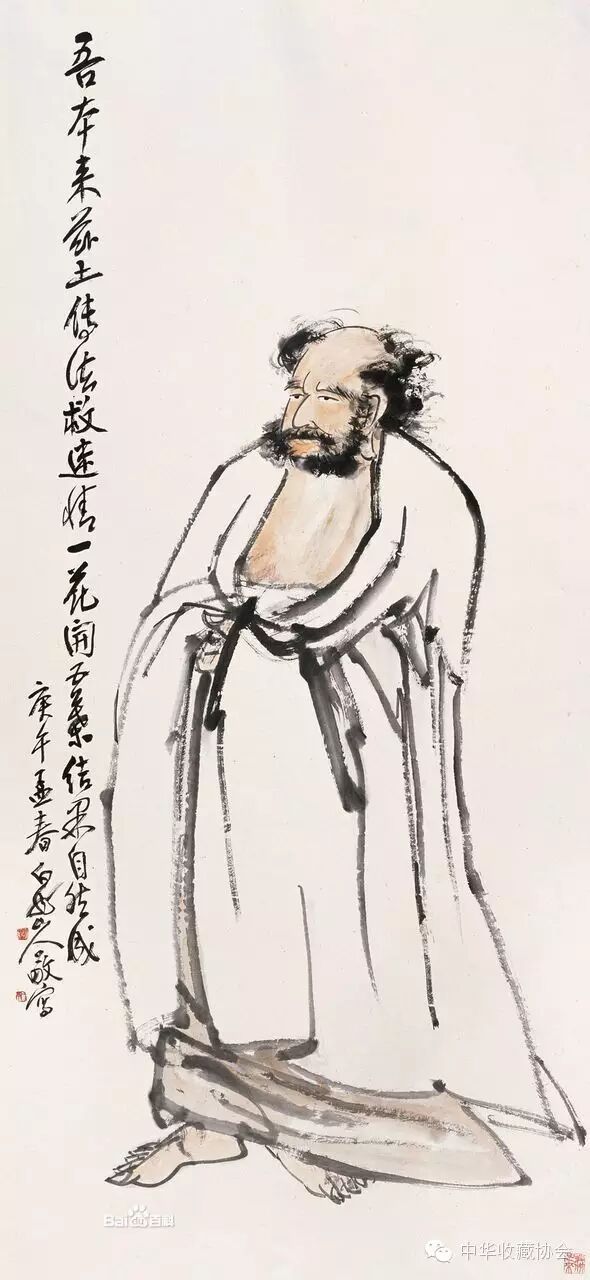 吾本来兹土傳法救迷情一花開五葉結果自然成
庚午孟春白龍山人敬寫
Bai百科
中华收藏协会